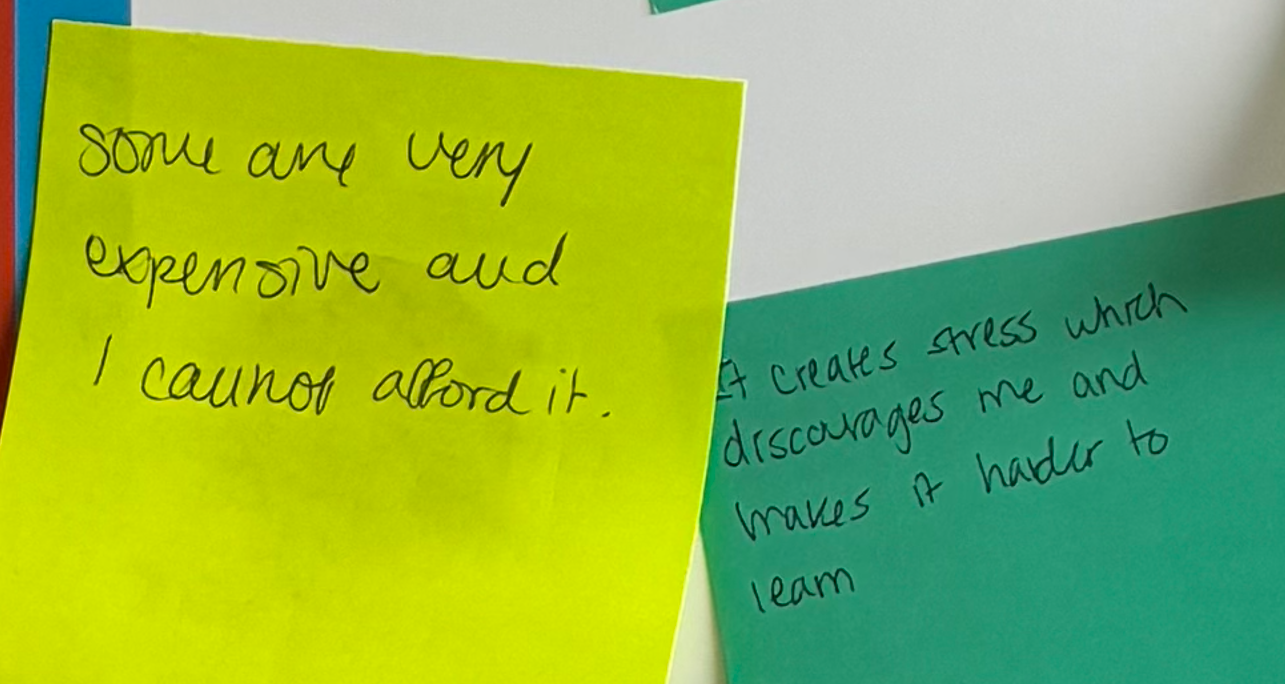 some are very
expensive and
I cannot afford it.
It creates stress which
discourages me and
makes it harder to
learn